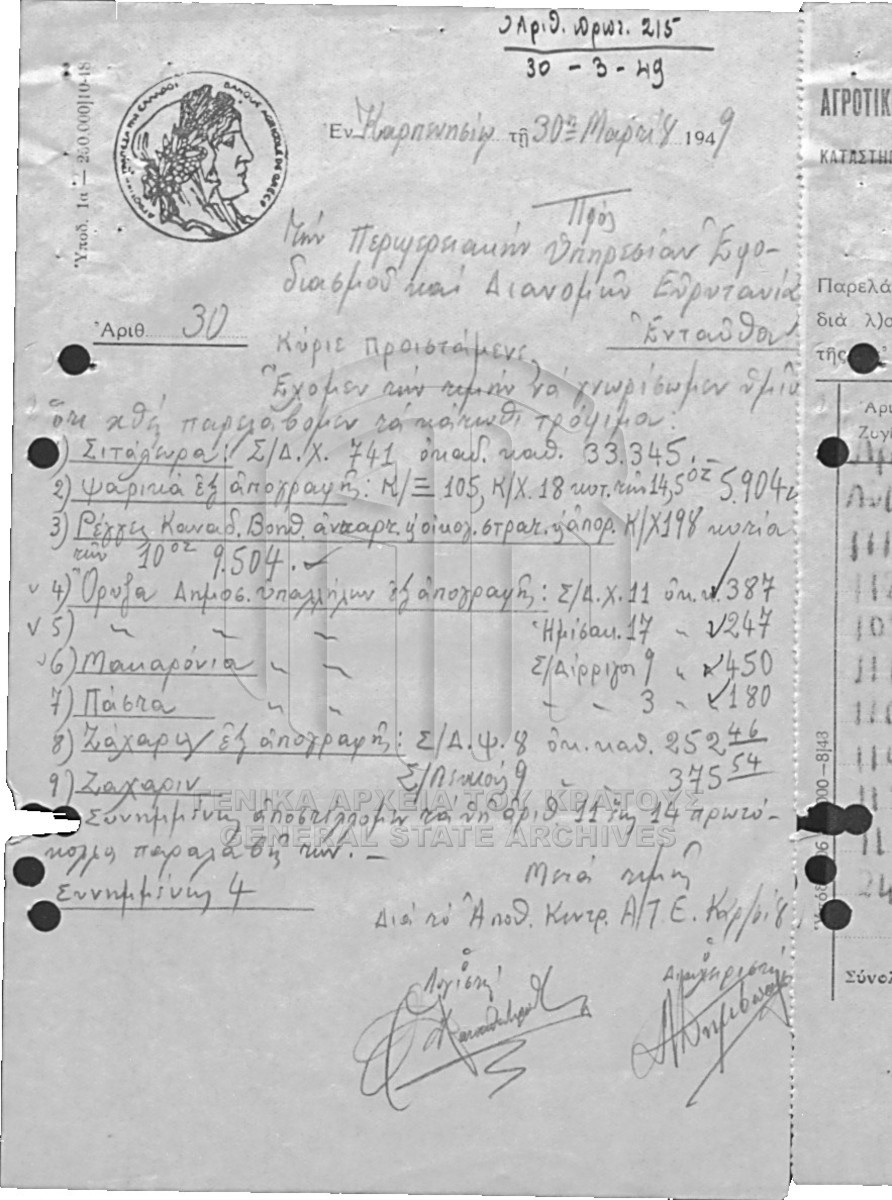 Ἀριθ. πρωτ. 215
30 - 3 - 49
Ὑποδ. 1α — 250.000|10-48
Ἐν Καρπενησίῳ τῇ 30ῃ Μαρτίου 1949
Πρὸς
Τὴν Περιφερειακὴν Ὑπηρεσίαν Ἐφο-
διασμοῦ καὶ Διανομῶν Εὐρυτανία
Ἐνταῦθα
Ἀριθ. 30
Κύριε Προϊστάμενε,
Ἔχομεν τὴν τιμὴν νὰ γνωρίσωμεν ὑμῖν
ὅτι χθὲς παρελάβομεν τὰ κάτωθι τρόφιμα:
1) Σιτάλευρα: Σ/Δ.Χ. 741 ὀκάδ. καθ. 33.345.-
2) Ψαρικὰ ἐξ ἀπογραφῆς: Κ/Ξ 105, Κ/Χ. 18 κυτ. τῶν 14,5 οζ 5.904
3) Ρέγγες Καναδ. Βοηθ. ἀνταρτ. οἰκογ. στρατ. ἀπορ. Κ/Χ 198 κυτία
τῶν 10 οζ 9.504.
4) Ὄρυζα Δημοσ. ὑπαλλήλων ἐξ ἀπογραφῆς: Σ/Δ.Χ. 11 ὀκ. κ. 387
5) " " " Ἡμίσακ. 17 " 247
6) Μακαρόνια " " Σ/Δίρριγοι 9 " 450
7) Πάστα " " " " 3 " 180
8) Ζάχαρις ἐξ ἀπογραφῆς: Σ/Δ.Ψ. 8 ὀκ. καθ. 252 46
9) Ζάχαριν 9 " " 375 54
ΓΕΝΙΚΑ ΑΡΧΕΙΑ ΤΟΥ ΚΡΑΤΟΥΣ
GENERAL STATE ARCHIVES
Συνημμένως ἀποστέλλομεν τὰ ὑπ ἀριθ. 11 ἕως 14 πρωτό-
κολλα παραλαβῆς των. —
Συνημμένως 4
Μετὰ τιμῆς
Διὰ τὸ Ἀποθ. Κεντρ. Α.Τ.Ε. Καρ/σίου
ὁ
Λογιστὴς
ὁ
Διαχειριστὴς
ΑΓΡΟΤΙΚ
ΚΑΤΑΣΤΗ
Παρελά
διὰ λ)σ
τῆς
Ἀρι
Ζυγί
000-8|48
Σύνολ